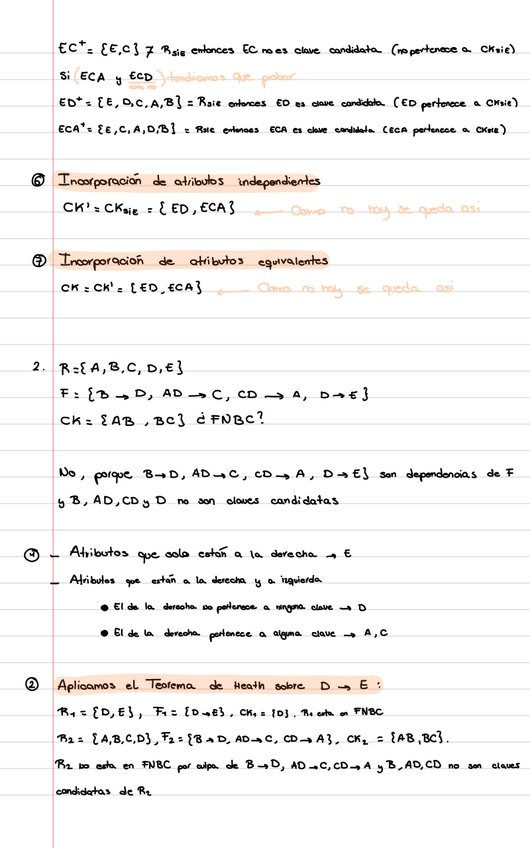 EC⁺ = {E,C} ≠ Rsie entonces EC no es clave candidata (no pertenece a CKsie)
Si (ECA y ECD) tendriamos que probar
ED⁺ = {E, D, C, A, B} = Rsie entonces ED es clave candidata (ED pertenece a CKsie)
ECA⁺ = {E, C, A, D, B} = Rsie entonces ECA es clave candidata (ECA pertenece a CKsie)
⑥ Incorporación de atributos independientes
CK' = CKSIE = {ED, ECA} ← Como no hay se queda asi
⑦ Incorporación de atributos equivalentes
CK = CK' = {ED, ECA} ← Como no hay se queda asi
2. R={A,B,C,D,E}
F = {B → D, AD → C, CD → A, D → E}
CK = {AB, BC} ¿FNBC?
No, porque B→D, AD→C, CD→A, D→E} son dependencias de F
y B, AD, CD y D no son claves candidatas
① – Atributos que solo están a la derecha → E
– Atributos que están a la derecha y a izquierda
• El de la derecha no pertenece a ninguna clave → D
• El de la derecha pertenece a alguna clave → A, C
② Aplicamos el Teorema de Heath sobre D → E:
R1 = {D,E}, F1 = {D→E}, CK1 = {D}. R1 esta en FNBC
R2 = {A,B,C,D}, F2 = {B→D, AD→C, CD→A}, CK2 = {AB,BC}.
R2 no esta en FNBC por culpa de B→D, AD→C, CD→A y B, AD, CD no son claves
candidatas de R2